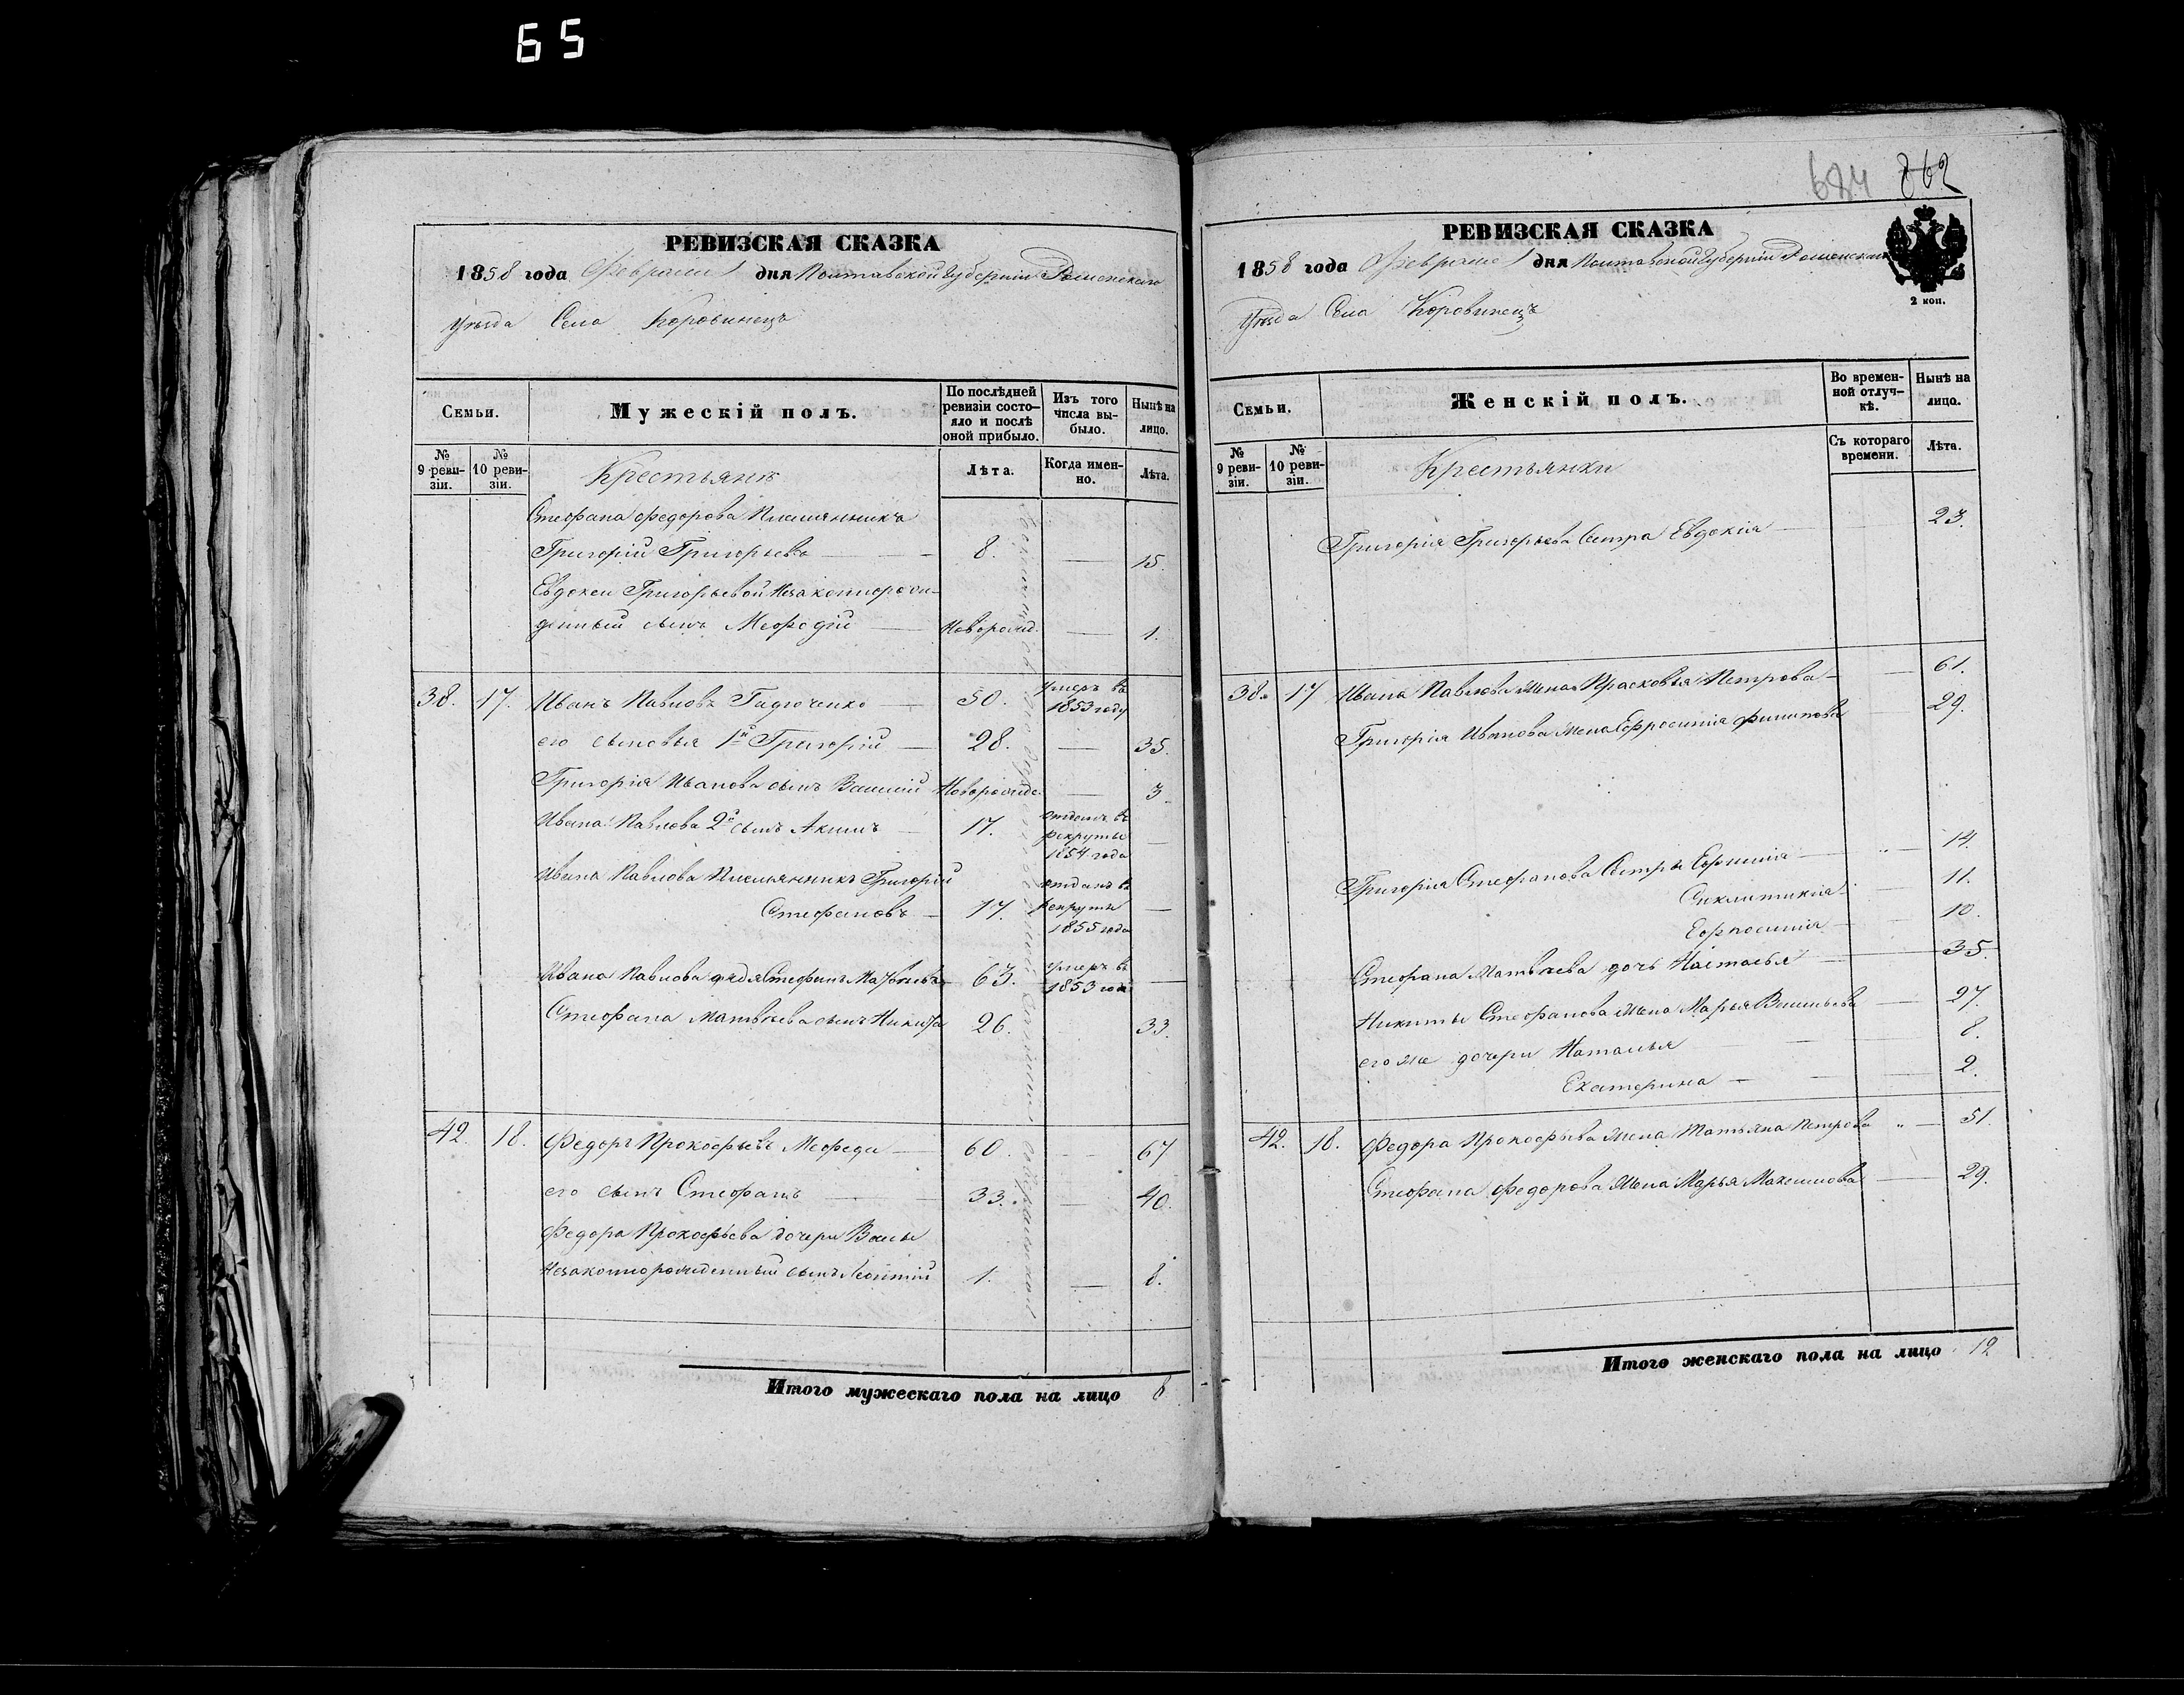 65
684 862
РЕВИЗСКАЯ СКАЗКА
1858 года Февраля 1 дня Полтавской Губерніи Роменскаго
Уѣзда Села Коровинецъ
Семьи.
Мужескій полъ.
По послѣдней ревизіи состо-
яло и послѣ оной прибыло.
Изъ того числа вы-
было.
Нынѣ на лицо.
№ 9 реви-
зіи.
№ 10 реви-
зіи.
Крестьянѣ
Лѣта.
Когда имен-
но.
Лѣта.
Стефана Федорова Племянникъ
Григорій Григорьевъ 8. 15.
Евдокеи Григорьевой Незаконнорож-
денный сынъ Мефодій Новорожд. 1.
38. 17. Иванъ Павловъ Гадюченко 50. умеръ въ 1853 году
его сыновья 1й Григорій 28. 35.
Григорія Иванова сынъ Василій Новорожде. 3.
Ивана Павлова 2й сынъ Акимъ 17. отданъ въ рекруты 1854 года
Ивана Павлова Племянникъ Григорій
Стефановъ 17. отданъ въ рекруты 1855 года
Ивана Павлова дядя Стефанъ Матвѣевъ 63. умеръ въ 1853 году
Стефана Матвѣева сынъ Никита 26. 33.
42. 18. Федоръ Прокофьевъ Мефеда 60. 67
его сынъ Стефанъ 33. 40.
Федора Прокофьева дочери
Незаконнорожденный сынъ Леонтій 1. 8.
Итого мужескаго пола на лицо 8
РЕВИЗСКАЯ СКАЗКА
1858 года Февраля 1 дня Полтавской Губерніи Роменскаго
2 коп.
Уѣзда Села Коровинецъ
Семьи.
Женскій полъ.
Во времен-
ной отлуч-
кѣ.
Нынѣ на лицо.
№ 9 реви-
зіи.
№ 10 реви-
зіи.
Крестьянки
Съ котораго времени.
Лѣта.
Григорія Григорьева Сестра Евдокія 23.
38. 17 Ивана Павлова Жена Прасковья Петрова 61.
Григорія Иванова Жена Ефросинія Филипова 29.
Григорія Стефанова Сестры 14.
Синклитикія 11.
Ефросинія 10.
Стефана Матвѣева дочь Настасья 35.
Никиты Стефанова Жена Марья Васильева 27.
его же дочери Наталья 8.
Екатерина 2.
42. 18. Федора Прокофьева Жена Татьяна Петрова 51.
Стефана Федорова Жена Марья Максимова 29.
Итого женскаго пола на лицо 12